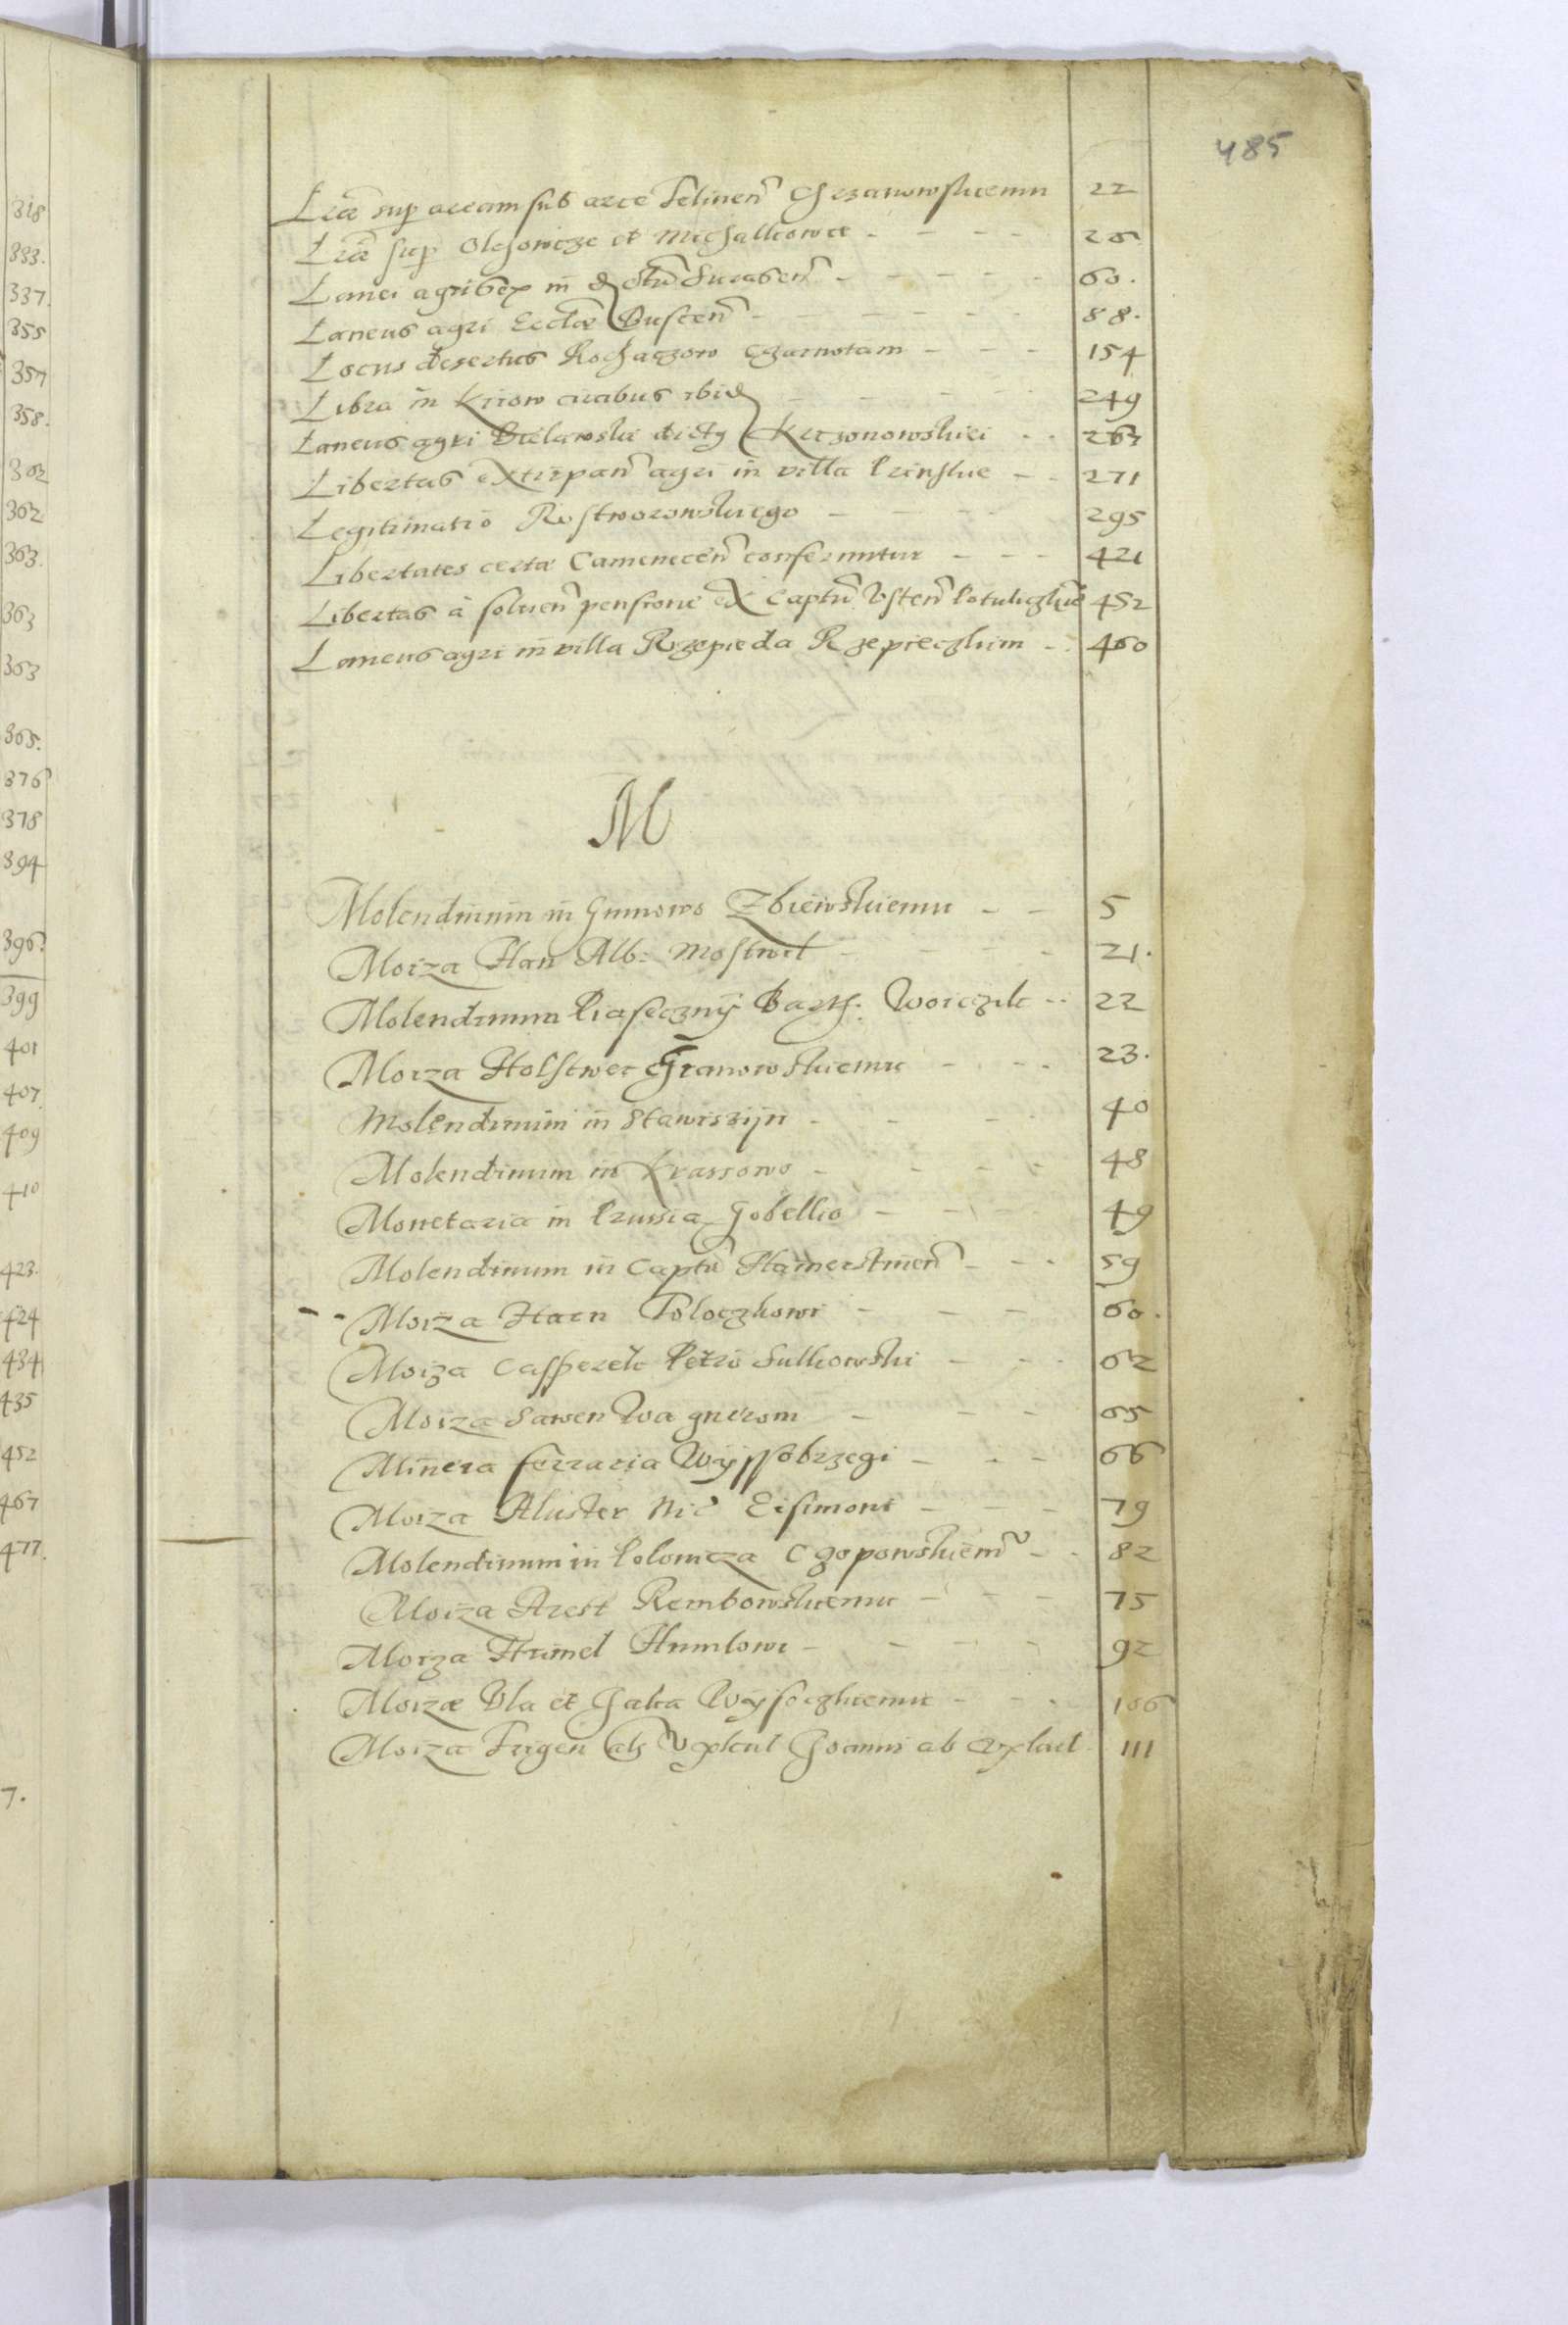 318
333.
337.
355
357
358.
362
363.
363
363
365.
376
378
394
396.
399
401
407.
409
410
423.
424
434
435
452
467
477.
7.
485
Lræ sup aream sub arce Felinen 22
Lræ sup et
Lanei agri in 60.
Laneus agri Eccłæ Buscen 88.
Locus desertus Rochaczow Czarnotam 154
Libra in Kiiow civibus ibid 249
Laneus agri dict 263
Libertas extirpan agri in villa 271
Legitimatio Rostworowskiego 295
Libertates certæ Camenecen conferuntur 421
Libertas à soluen pensione ex Captu Vsten 452
Laneus agri in villa Rzepieda Rzepieczkim 460
M
Molendinum in Gumowo Zbiewskiemu 5
Moiza Han Alb: 21.
Molendinum Piasecznÿ Barth: Woiczik 22
Moiza Holstwer Granowskiemu 23.
Molendinum in Stawiszijn 40
Molendinum in Krassowo 48
Monetaria in Prussia Gobellio 49
Molendinum in Captu Hamerstinen 59
Moiza Harn Poloczkowi 60.
Moiza Casperek Petro Sulkowski 62
Moiza Sawen Wagnerom 65
Minera ferraria Wÿssobrzegi 66
Moiza Kluster Nic Eisimont 79
Molendinum in Polomcza Czopowskiem 82
Moiza Arest Rembowskiemu 75
Moiza Humel Humlowi 92
Moizæ Vla et Galia Wÿsoczkiemu 106
Moiza Frigen als Vxkul Joanni ab Vxkul 111